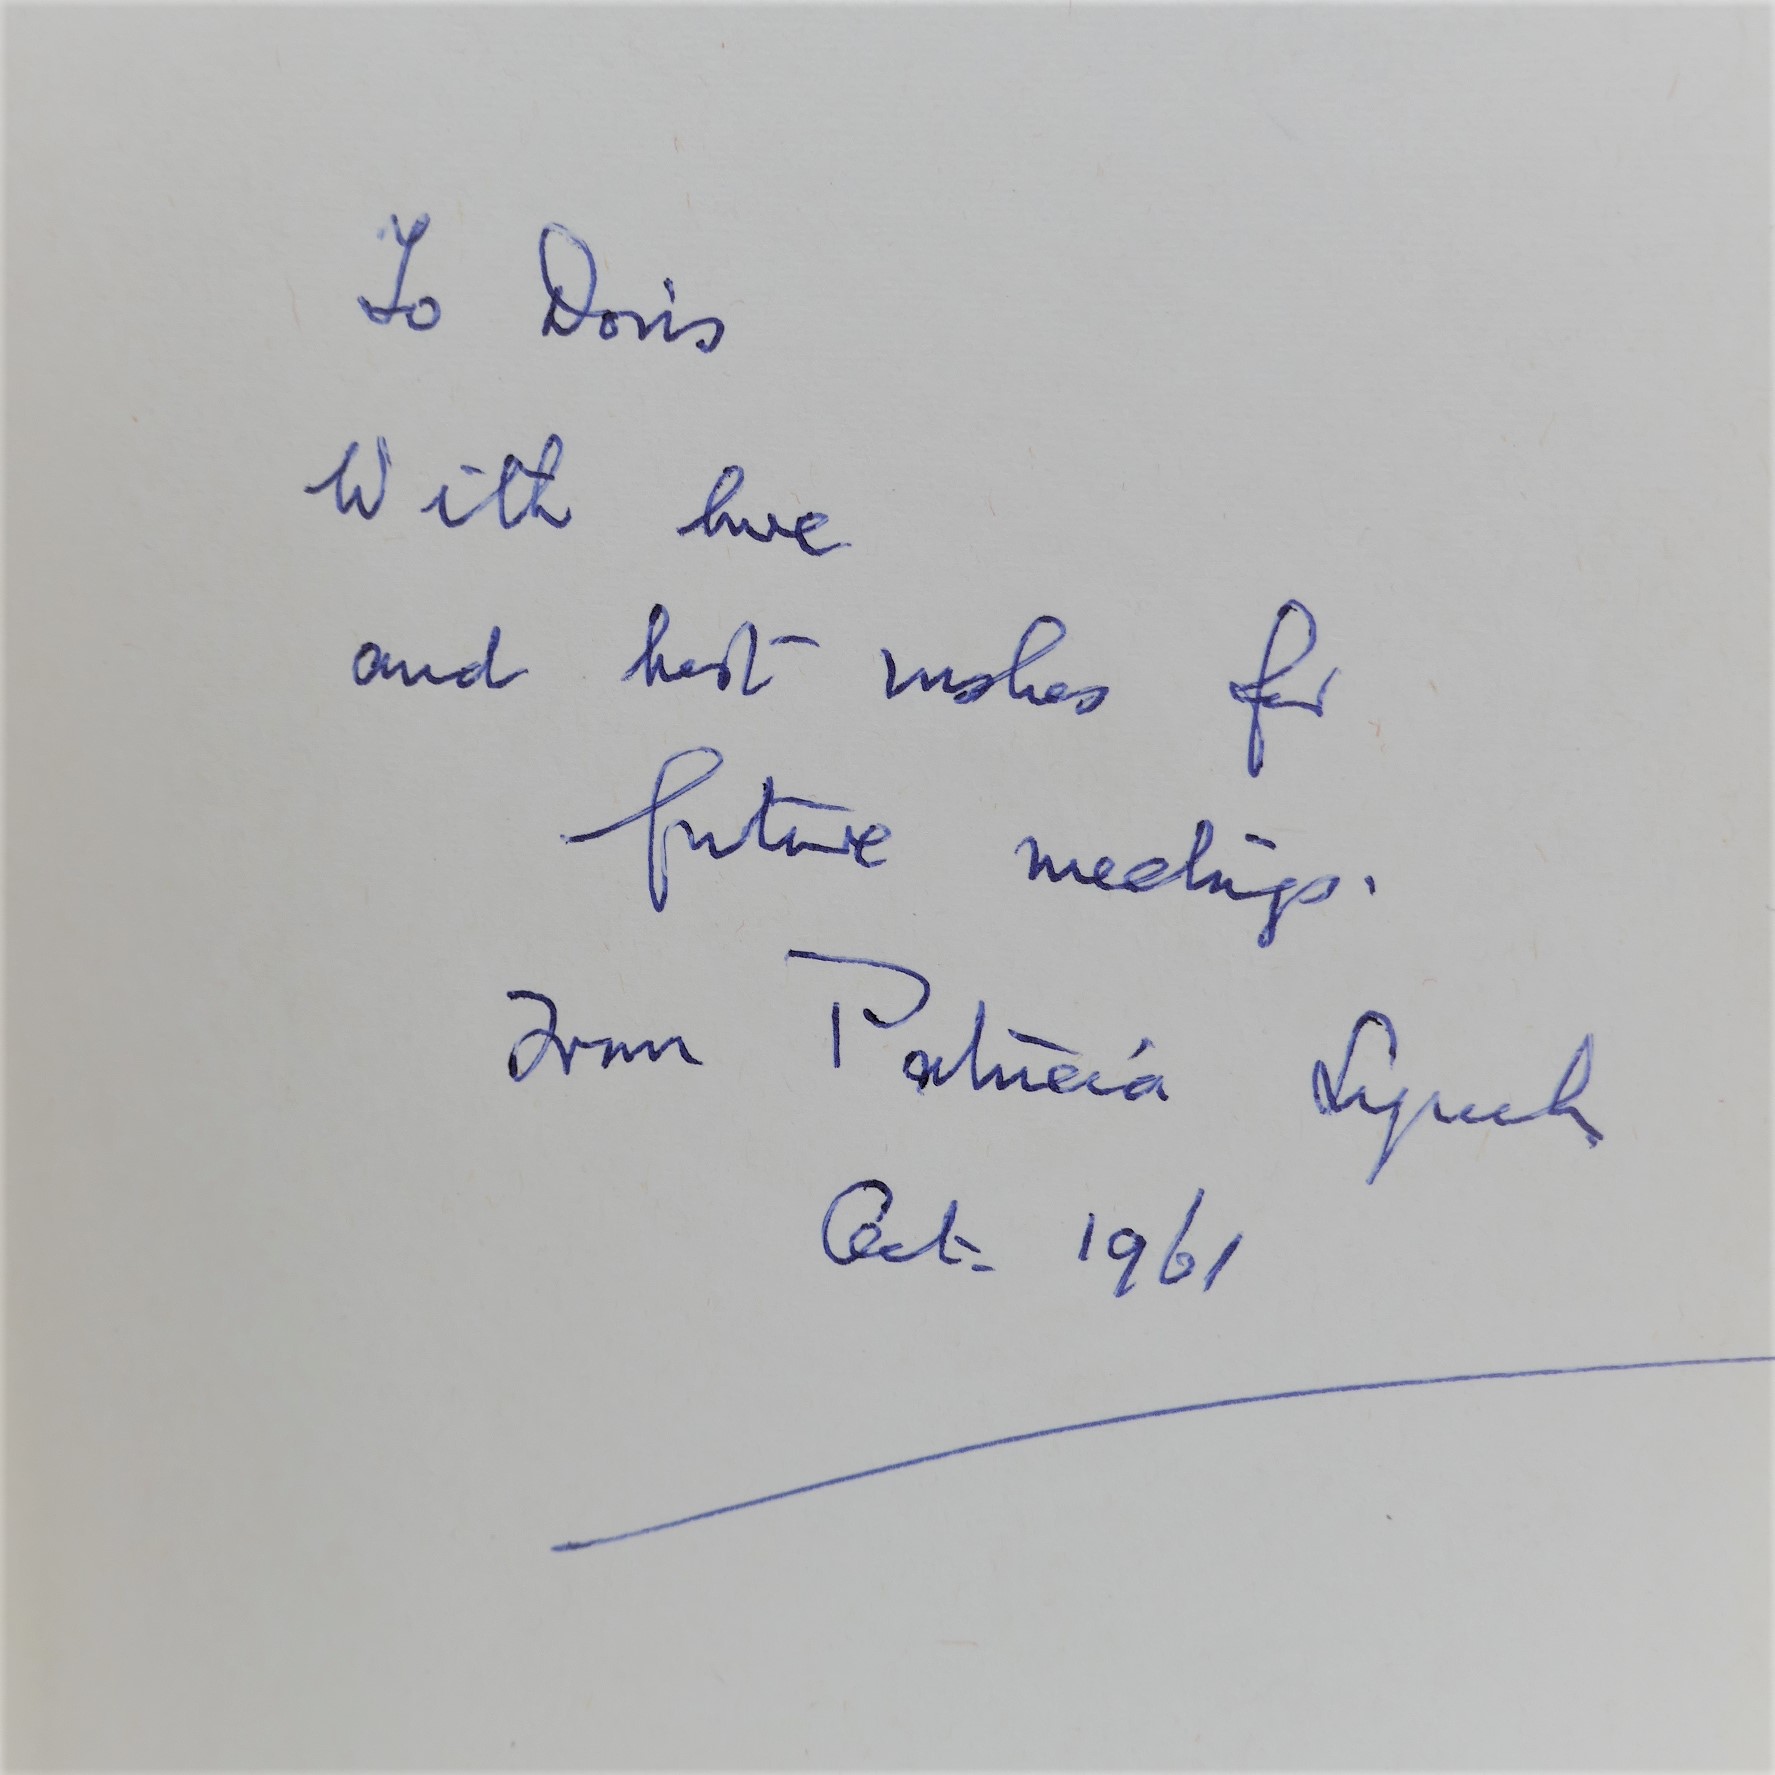 To Doris
With love
and best wishes for
future meetings.
From Patricia Lynch
Oct. 1961